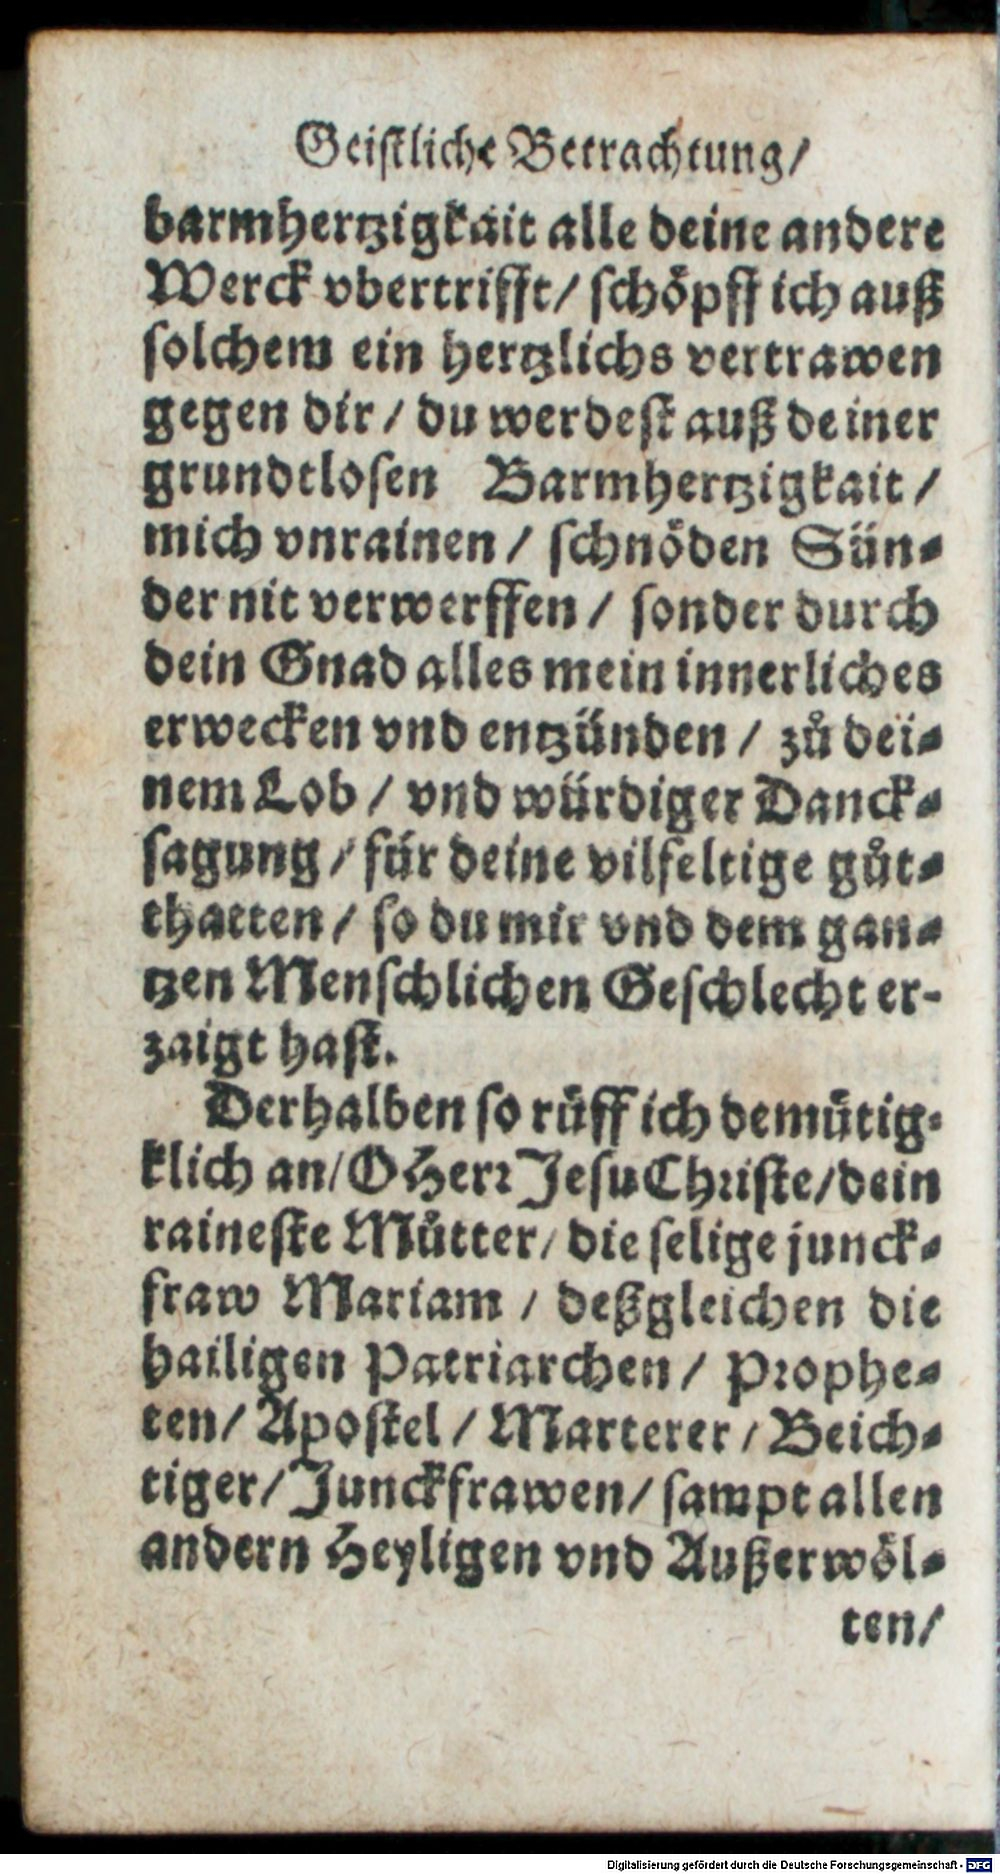 Geistliche Betrachtung/
barmhertzigkait alle deine andere
Werck vbertrifft/ schöpff ich auß
solchem ein hertzlichs vertrawen
gegen dir/ du werdest auß deiner
grundtlosen Barmhertzigkait/
mich vnrainen/ schnöden Sün-
der nit verwerffen/ sonder durch
dein Gnad alles mein innerliches
erwecken vnd entzünden/ zů dei-
nem Lob/ vnd würdiger Danck-
sagung/ für deine vilfeltige gůt-
thatten/ so du mir vnd dem gan-
tzen Menschlichen Geschlecht er-
zaigt hast.
Derhalben so rüff ich demütig-
klich an/ O Herr Jesu Christe/ dein
raineste Můtter/ die selige junck-
fraw Mariam/ deßgleichen die
hailigen Patriarchen/ Prophe-
ten/ Apostel/ Marterer/ Beich-
tiger/ Junckfrawen/ sampt allen
andern Heyligen vnd Außerwöl-
ten/
Digitalisierung gefördert durch die Deutsche Forschungsgemeinschaft - DFG